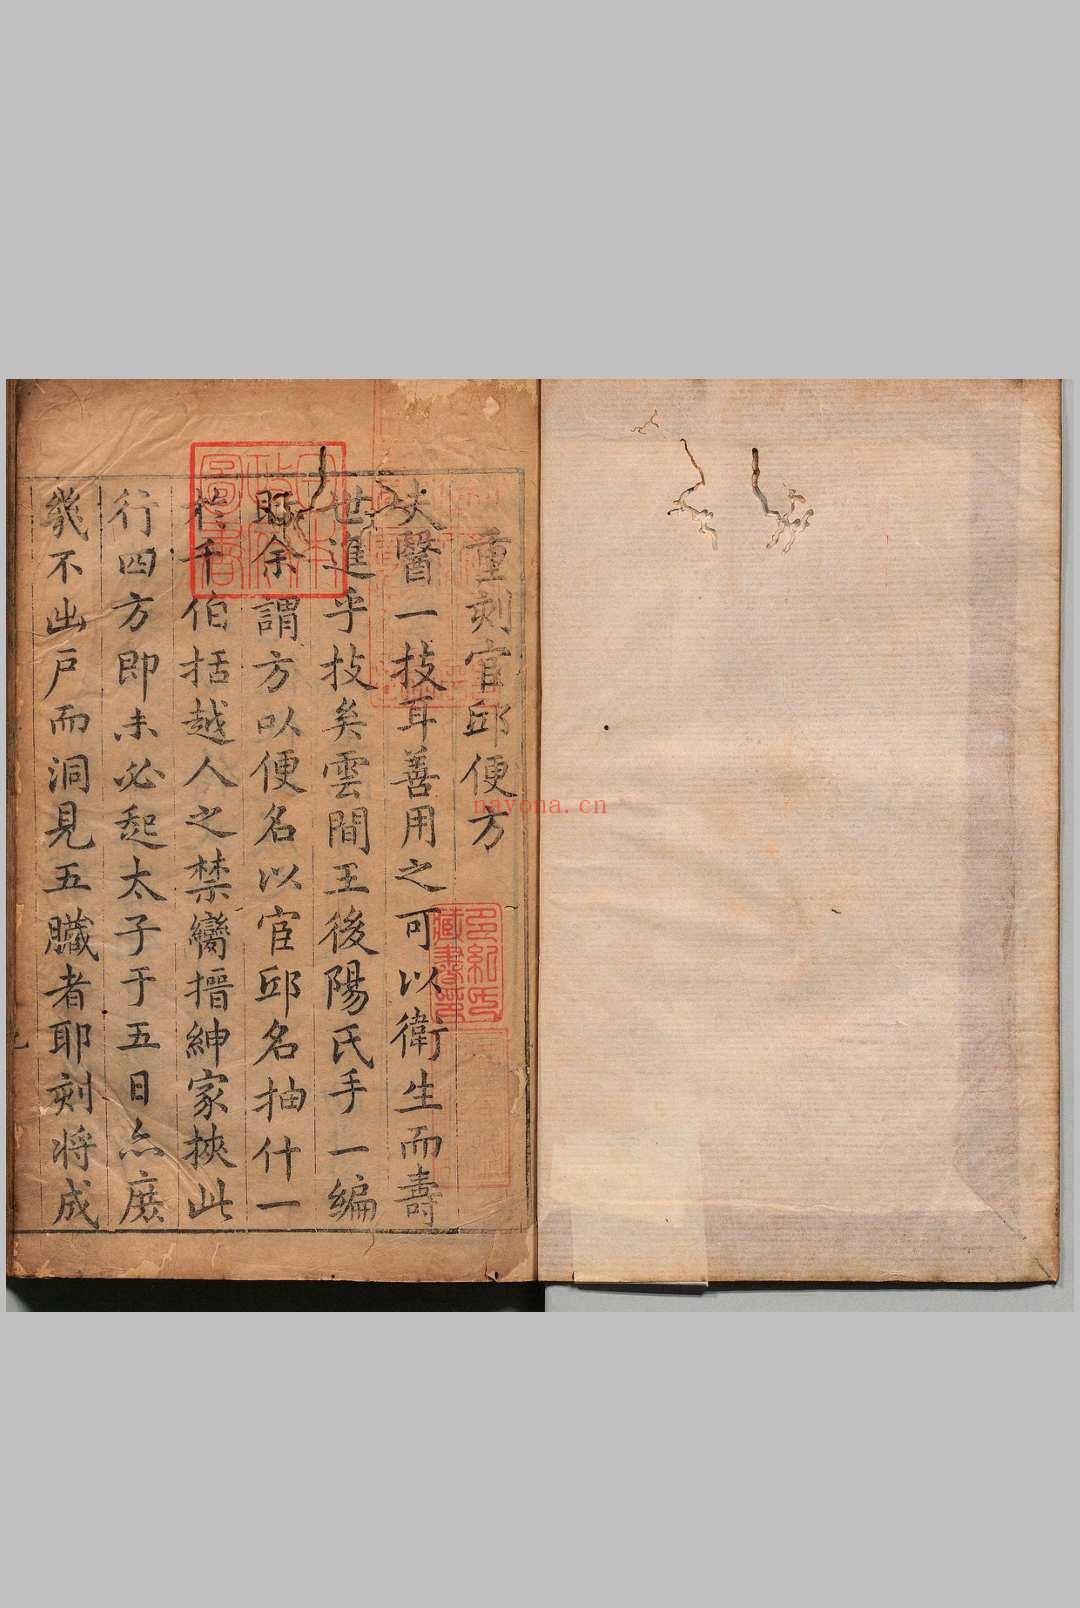 重刻宦邱便方
夫醫一技耳善用之可以衛生而壽
世進乎技矣雲間王後陽氏手一編
眎余謂方以便名以宦邱名抽什一
於千伯括越人之禁臠搢紳家挾此
行四方即未必起太子于五日亦庶
幾不出戸而洞見五臟者耶刻將成
nayona.cn